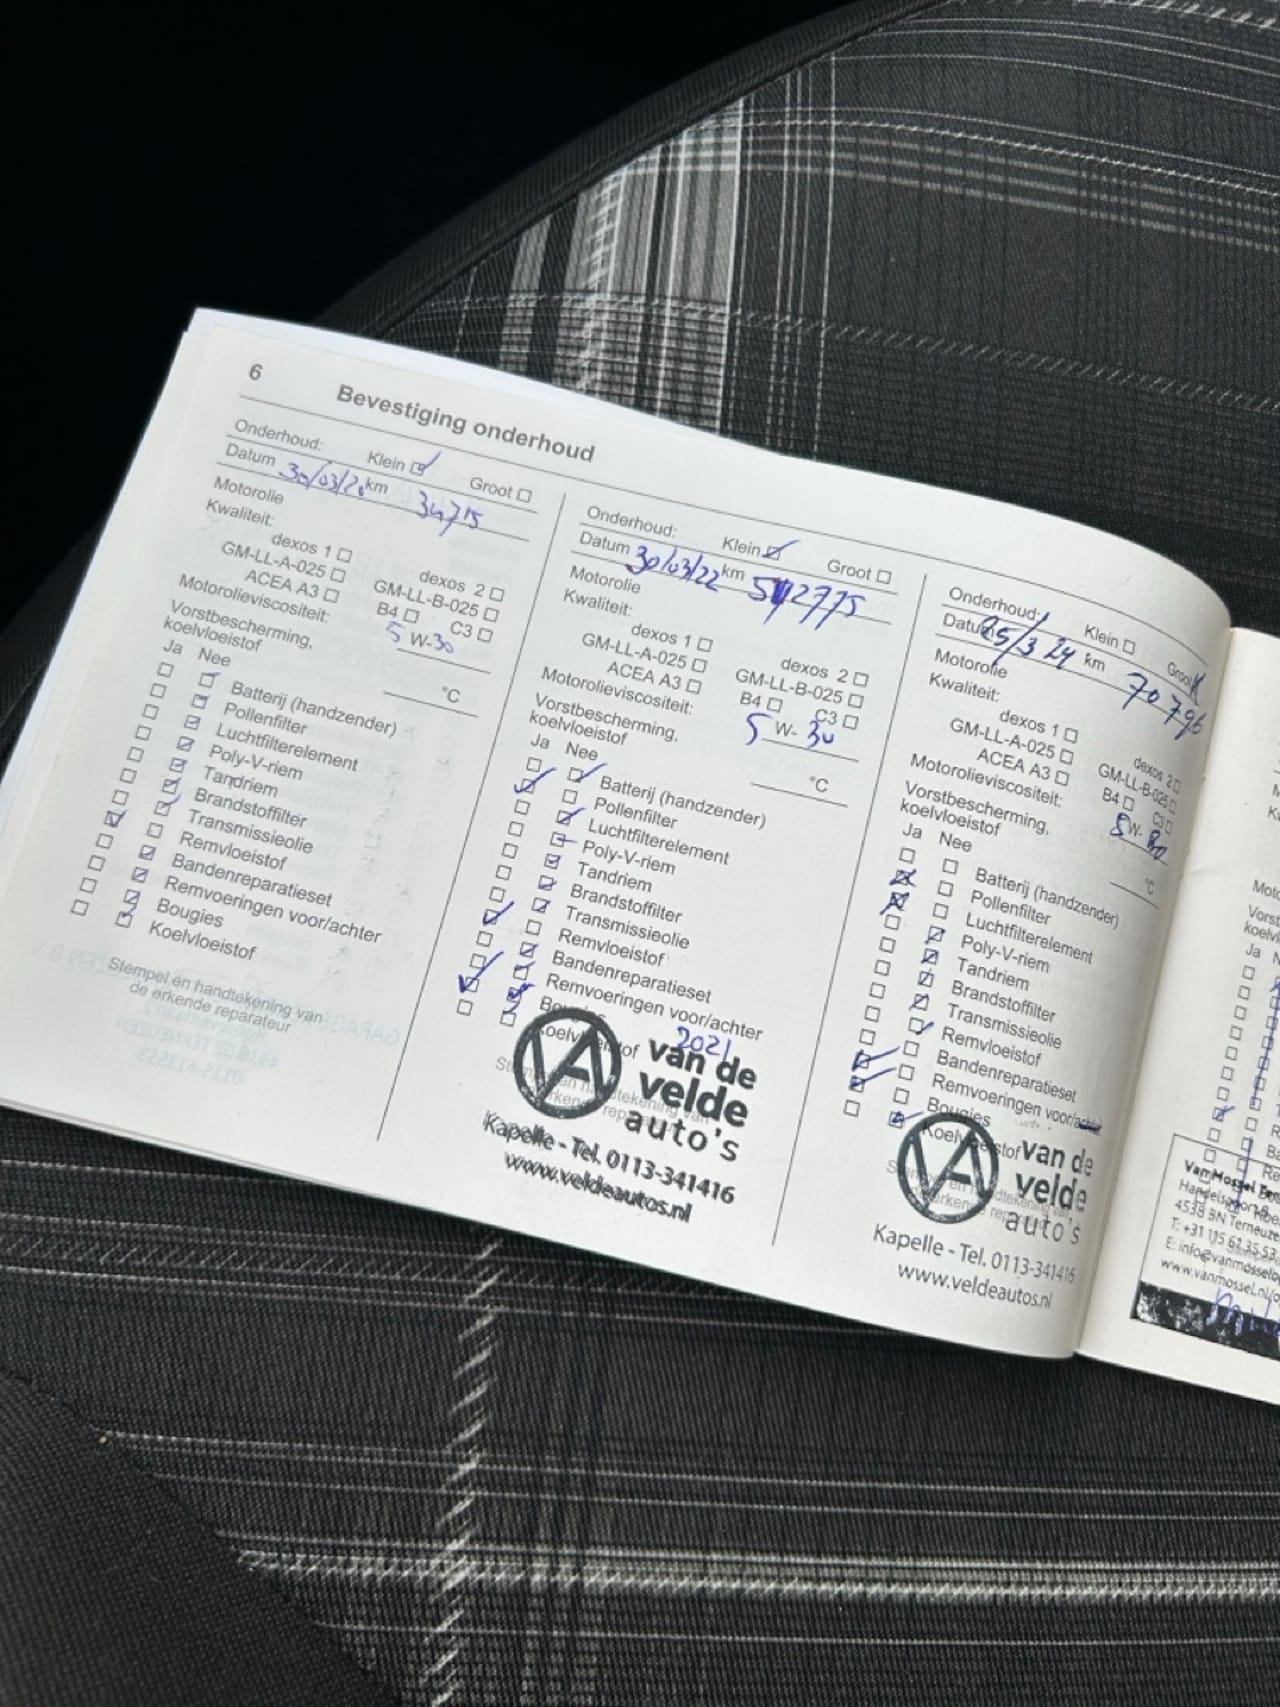 6
Bevestiging onderhoud
Onderhoud: Klein Groot
Datum 30/03/20 km 34715
Motorolie
Kwaliteit:
dexos 1 dexos 2
GM-LL-A-025 GM-LL-B-025
ACEA A3 B4 C3
Motorolieviscositeit: 5 W-30
Vorstbescherming,
koelvloeistof °C
Ja Nee
Batterij (handzender)
Pollenfilter
Luchtfilterelement
Poly-V-riem
Tandriem
Brandstoffilter
Transmissieolie
Remvloeistof
Bandenreparatieset
Remvoeringen voor/achter
Bougies
Koelvloeistof
Stempel en handtekening van
de erkende reparateur
Onderhoud: Klein Groot
Datum 30/03/22 km 52775
Motorolie
Kwaliteit:
dexos 1 dexos 2
GM-LL-A-025 GM-LL-B-025
ACEA A3 B4 C3
Motorolieviscositeit: 5 W-30
Vorstbescherming,
koelvloeistof °C
Ja Nee
Batterij (handzender)
Pollenfilter
Luchtfilterelement
Poly-V-riem
Tandriem
Brandstoffilter
Transmissieolie
Remvloeistof
Bandenreparatieset
Remvoeringen voor/achter
Bougies 2021
Koelvloeistof
van de
velde
auto's
Kapelle - Tel. 0113-341416
www.veldeautos.nl
Onderhoud: Klein Groot
Datum 25/3/24 km 70796
Motorolie
Kwaliteit:
dexos 1 dexos 2
GM-LL-A-025 GM-LL-B-025
ACEA A3 B4 C3
Motorolieviscositeit: 5 W-
Vorstbescherming,
koelvloeistof °C
Ja Nee
Batterij (handzender)
Pollenfilter
Luchtfilterelement
Poly-V-riem
Tandriem
Brandstoffilter
Transmissieolie
Remvloeistof
Bandenreparatieset
Remvoeringen voor/achter
Bougies
Koelvloeistof
van de
velde
auto's
Kapelle - Tel. 0113-341416
www.veldeautos.nl
Ja
Van Mossel
4538 BN Terneuze